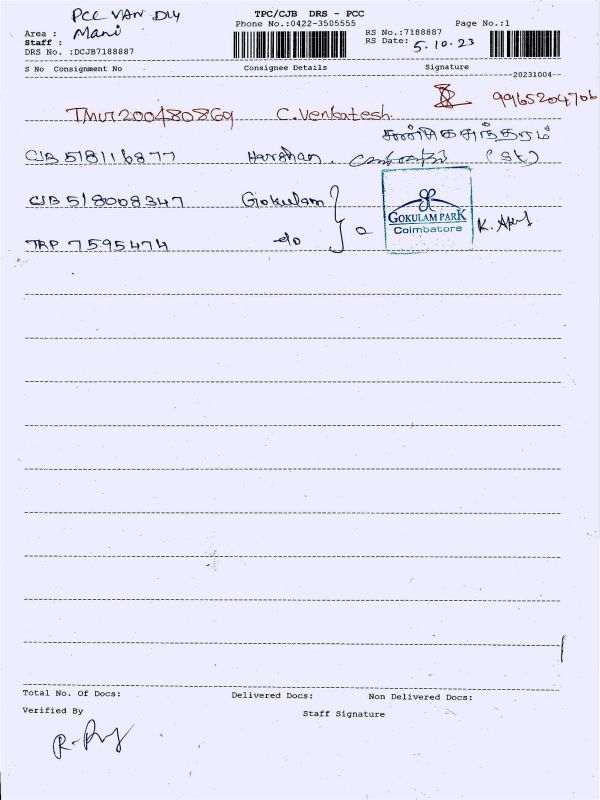 PCC VAN DLY
TPC/CJB DRS - PCC
Phone No.:0422-3505555
Page No.:1
Area : Mani
Staff :
RS No.:7188887
DRS No. :DCJB7188887
RS Date: 5.10.23
S No Consignment No Consignee Details Signature
20231004
TMU1200480869 C.Venkatesh 9965204706
CJB 518116877 Harshan சண்முகசுந்தரம்
CJB 518008347 Gokulam
GOKULAM PARK
Coimbatore
TRP 7595474 do
Total No. Of Docs: Delivered Docs: Non Delivered Docs:
Verified By
Staff Signature